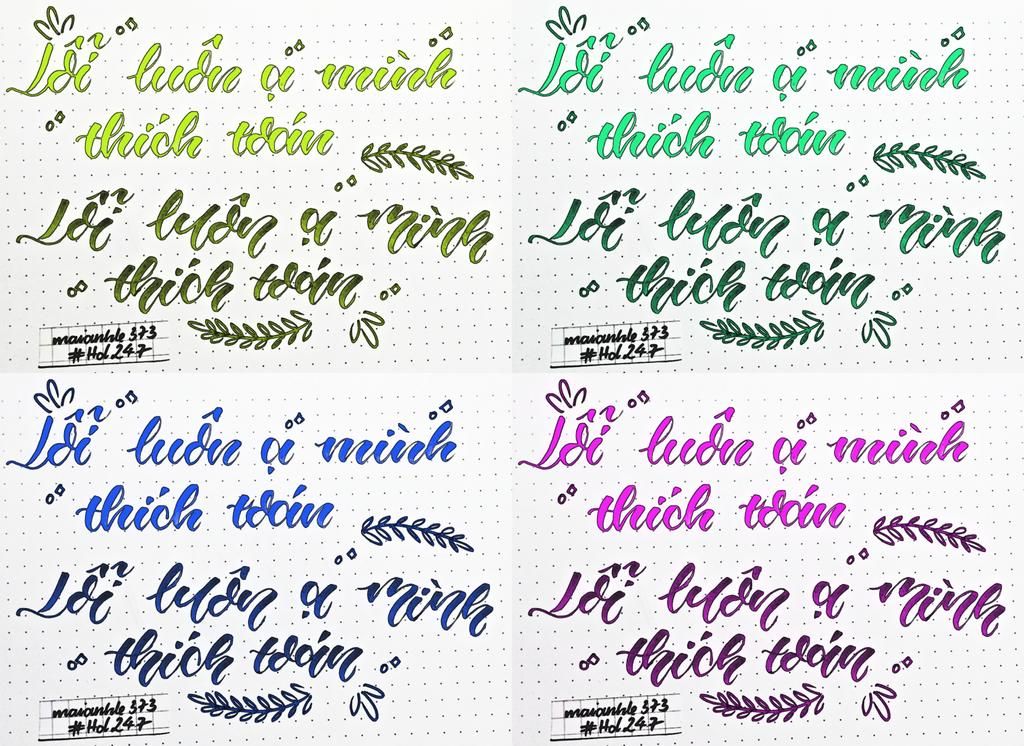 Lỗi luôn ạ mình
thích toán
Lỗi luôn ạ mình
thích toán
maianhle 373
# Hol 247
Lỗi luôn ạ mình
thích toán
Lỗi luôn ạ mình
thích toán
maianhle 373
# Hol 247
Lỗi luôn ạ mình
thích toán
Lỗi luôn ạ mình
thích toán
maianhle 373
# Hol 247
Lỗi luôn ạ mình
thích toán
Lỗi luôn ạ mình
thích toán
maianhle 373
# Hol 247